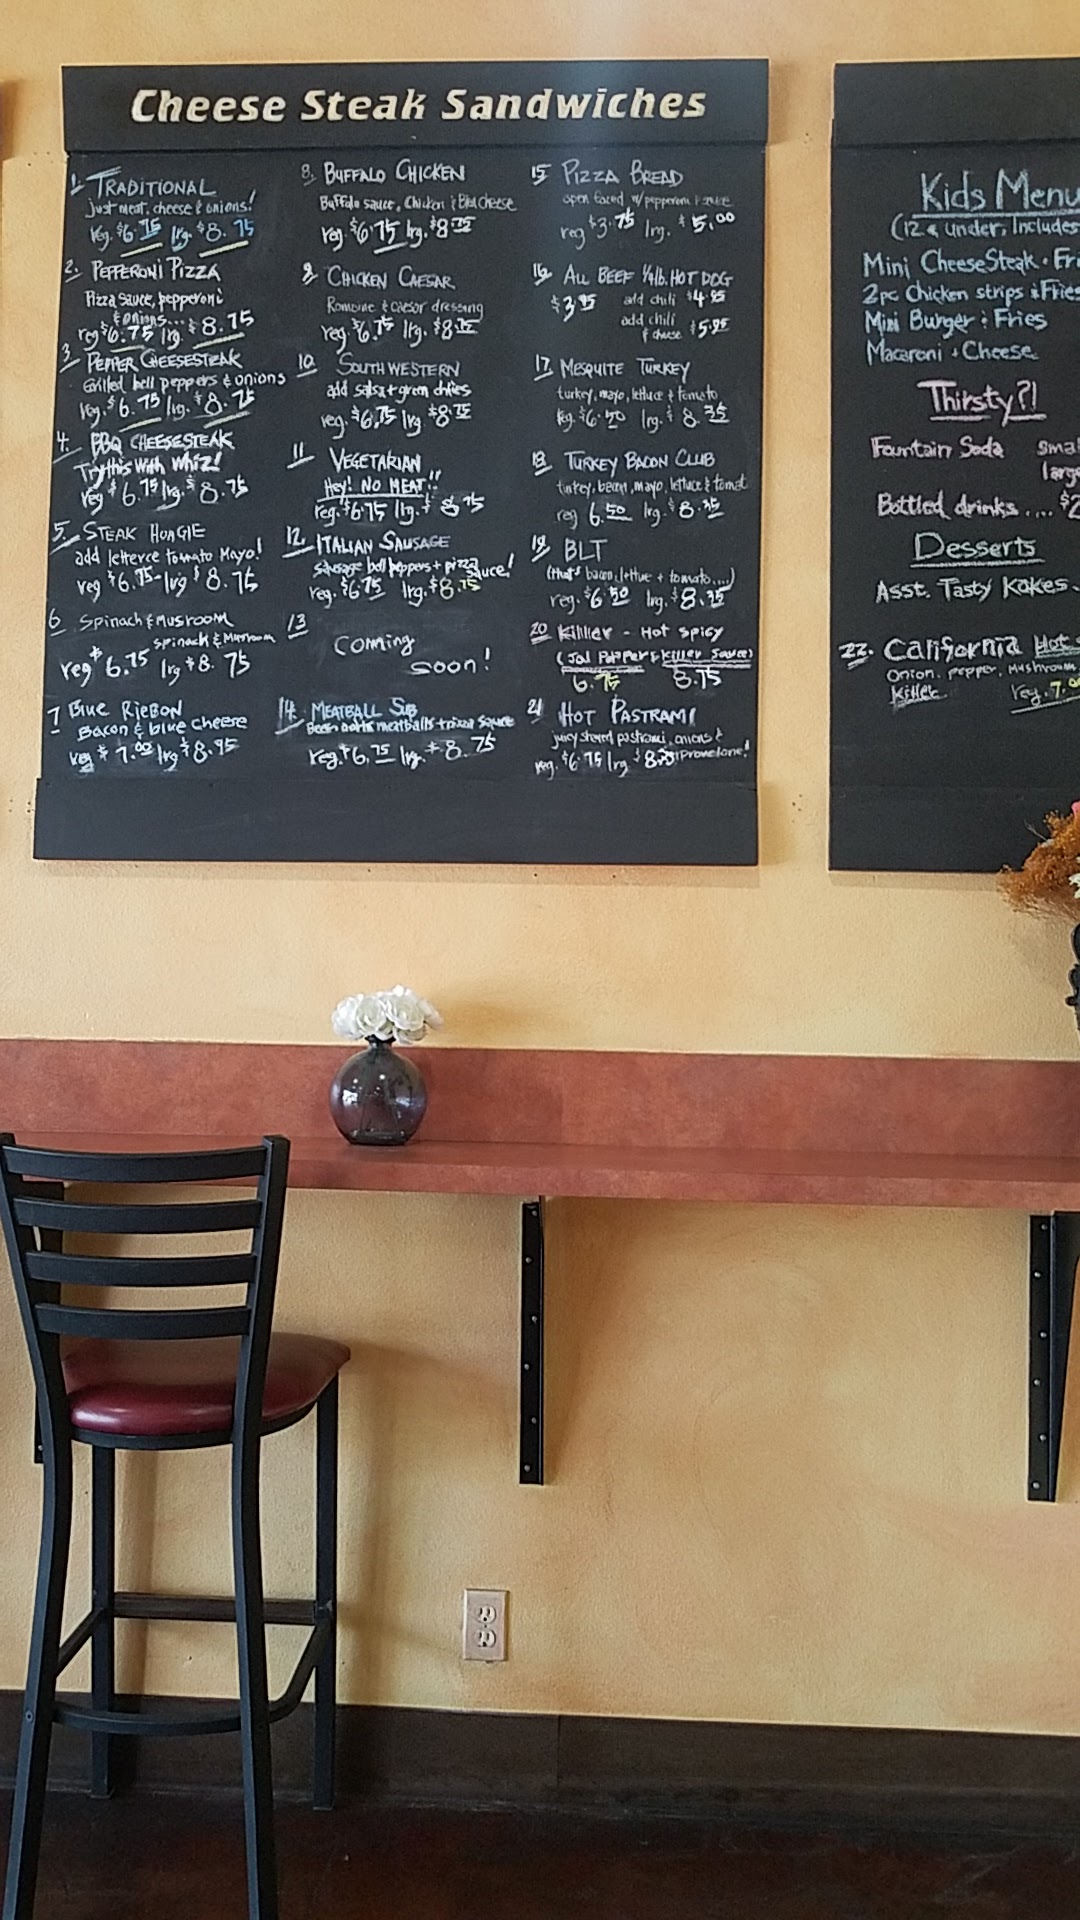 Cheese Steak Sandwiches
1. TRADITIONAL
just meat, cheese & onions!
reg. $6.75 lrg. $8.75
2. PEPPERONI PIZZA
Pizza sauce, pepperoni
& onions...
reg $6.75 lrg. $8.75
3. PEPPER CHEESESTEAK
Grilled bell peppers & onions
reg. $6.75 lrg. $8.75
4. BBQ CHEESESTEAK
Try this with Whiz!
reg $6.75 lrg. $8.75
5. STEAK HOAGIE
add letterce tomato Mayo!
reg $6.75 lrg $8.75
6 SPINACH & MUSROOM
spinach & Musroom
reg $6.75 lrg $8.75
7 BLUE RIEBON
Bacon & blue cheese
reg $7.00 lrg $8.95
8. BUFFALO CHICKEN
Buffalo sauce, Chicken & Bleu cheese
reg. $6.75 lrg. $8.75
9 CHICKEN CAESAR
Romaine & caesar dressing
reg. $6.75 lrg. $8.75
10. SOUTHWESTERN
add salsa + green chiles
reg. $6.75 lrg $8.75
11. VEGETARIAN
Hey! NO MEAT!!
reg. $6.75 lrg. $8.75
12. ITALIAN SAUSAGE
sausage bell peppers + pizza sauce!
reg. $6.75 lrg. $8.75
13
Coming
soon!
14. MEATBALL SUB
meatballs + pizza sauce
reg. $6.75 lrg. $8.75
15 PIZZA BREAD
open faced w/ pepperoni & sauce
reg $3.75 lrg. $5.00
16 ALL BEEF 1/4lb. HOT DOG
$3.95 add chili $4.95
add chili
& cheese $5.95
17. MESQUITE TURKEY
turkey, mayo, lettuce & tomato
reg. $6.50 lrg. $8.35
18 TURKEY BACON CLUB
turkey, bacon, mayo, lettuce & tomat
reg 6.50 lrg. $8.35
19. BLT
(that's bacon, lettue + tomato....)
reg. $6.50 lrg. $8.35
20 Killer - Hot spicy
(Jal Pepper & Killer Sauce)
6.75 8.75
21 HOT PASTRAMI
juicy shaved pastrami, onions &
provelone!
reg. $6.75 lrg $8.75
Kids Menu
(12 & under, Includes
Mini CheeseSteak · Fri
2pc Chicken strips & Fries
Mini Burger & Fries
Macaroni + Cheese
Thirsty?!
Fountain Soda Smal
large
Bottled drinks .... $2
Desserts
Asst. Tasty Kakes.
22. California Hot
Onion, pepper, Mushroom
Killer reg. 7.0